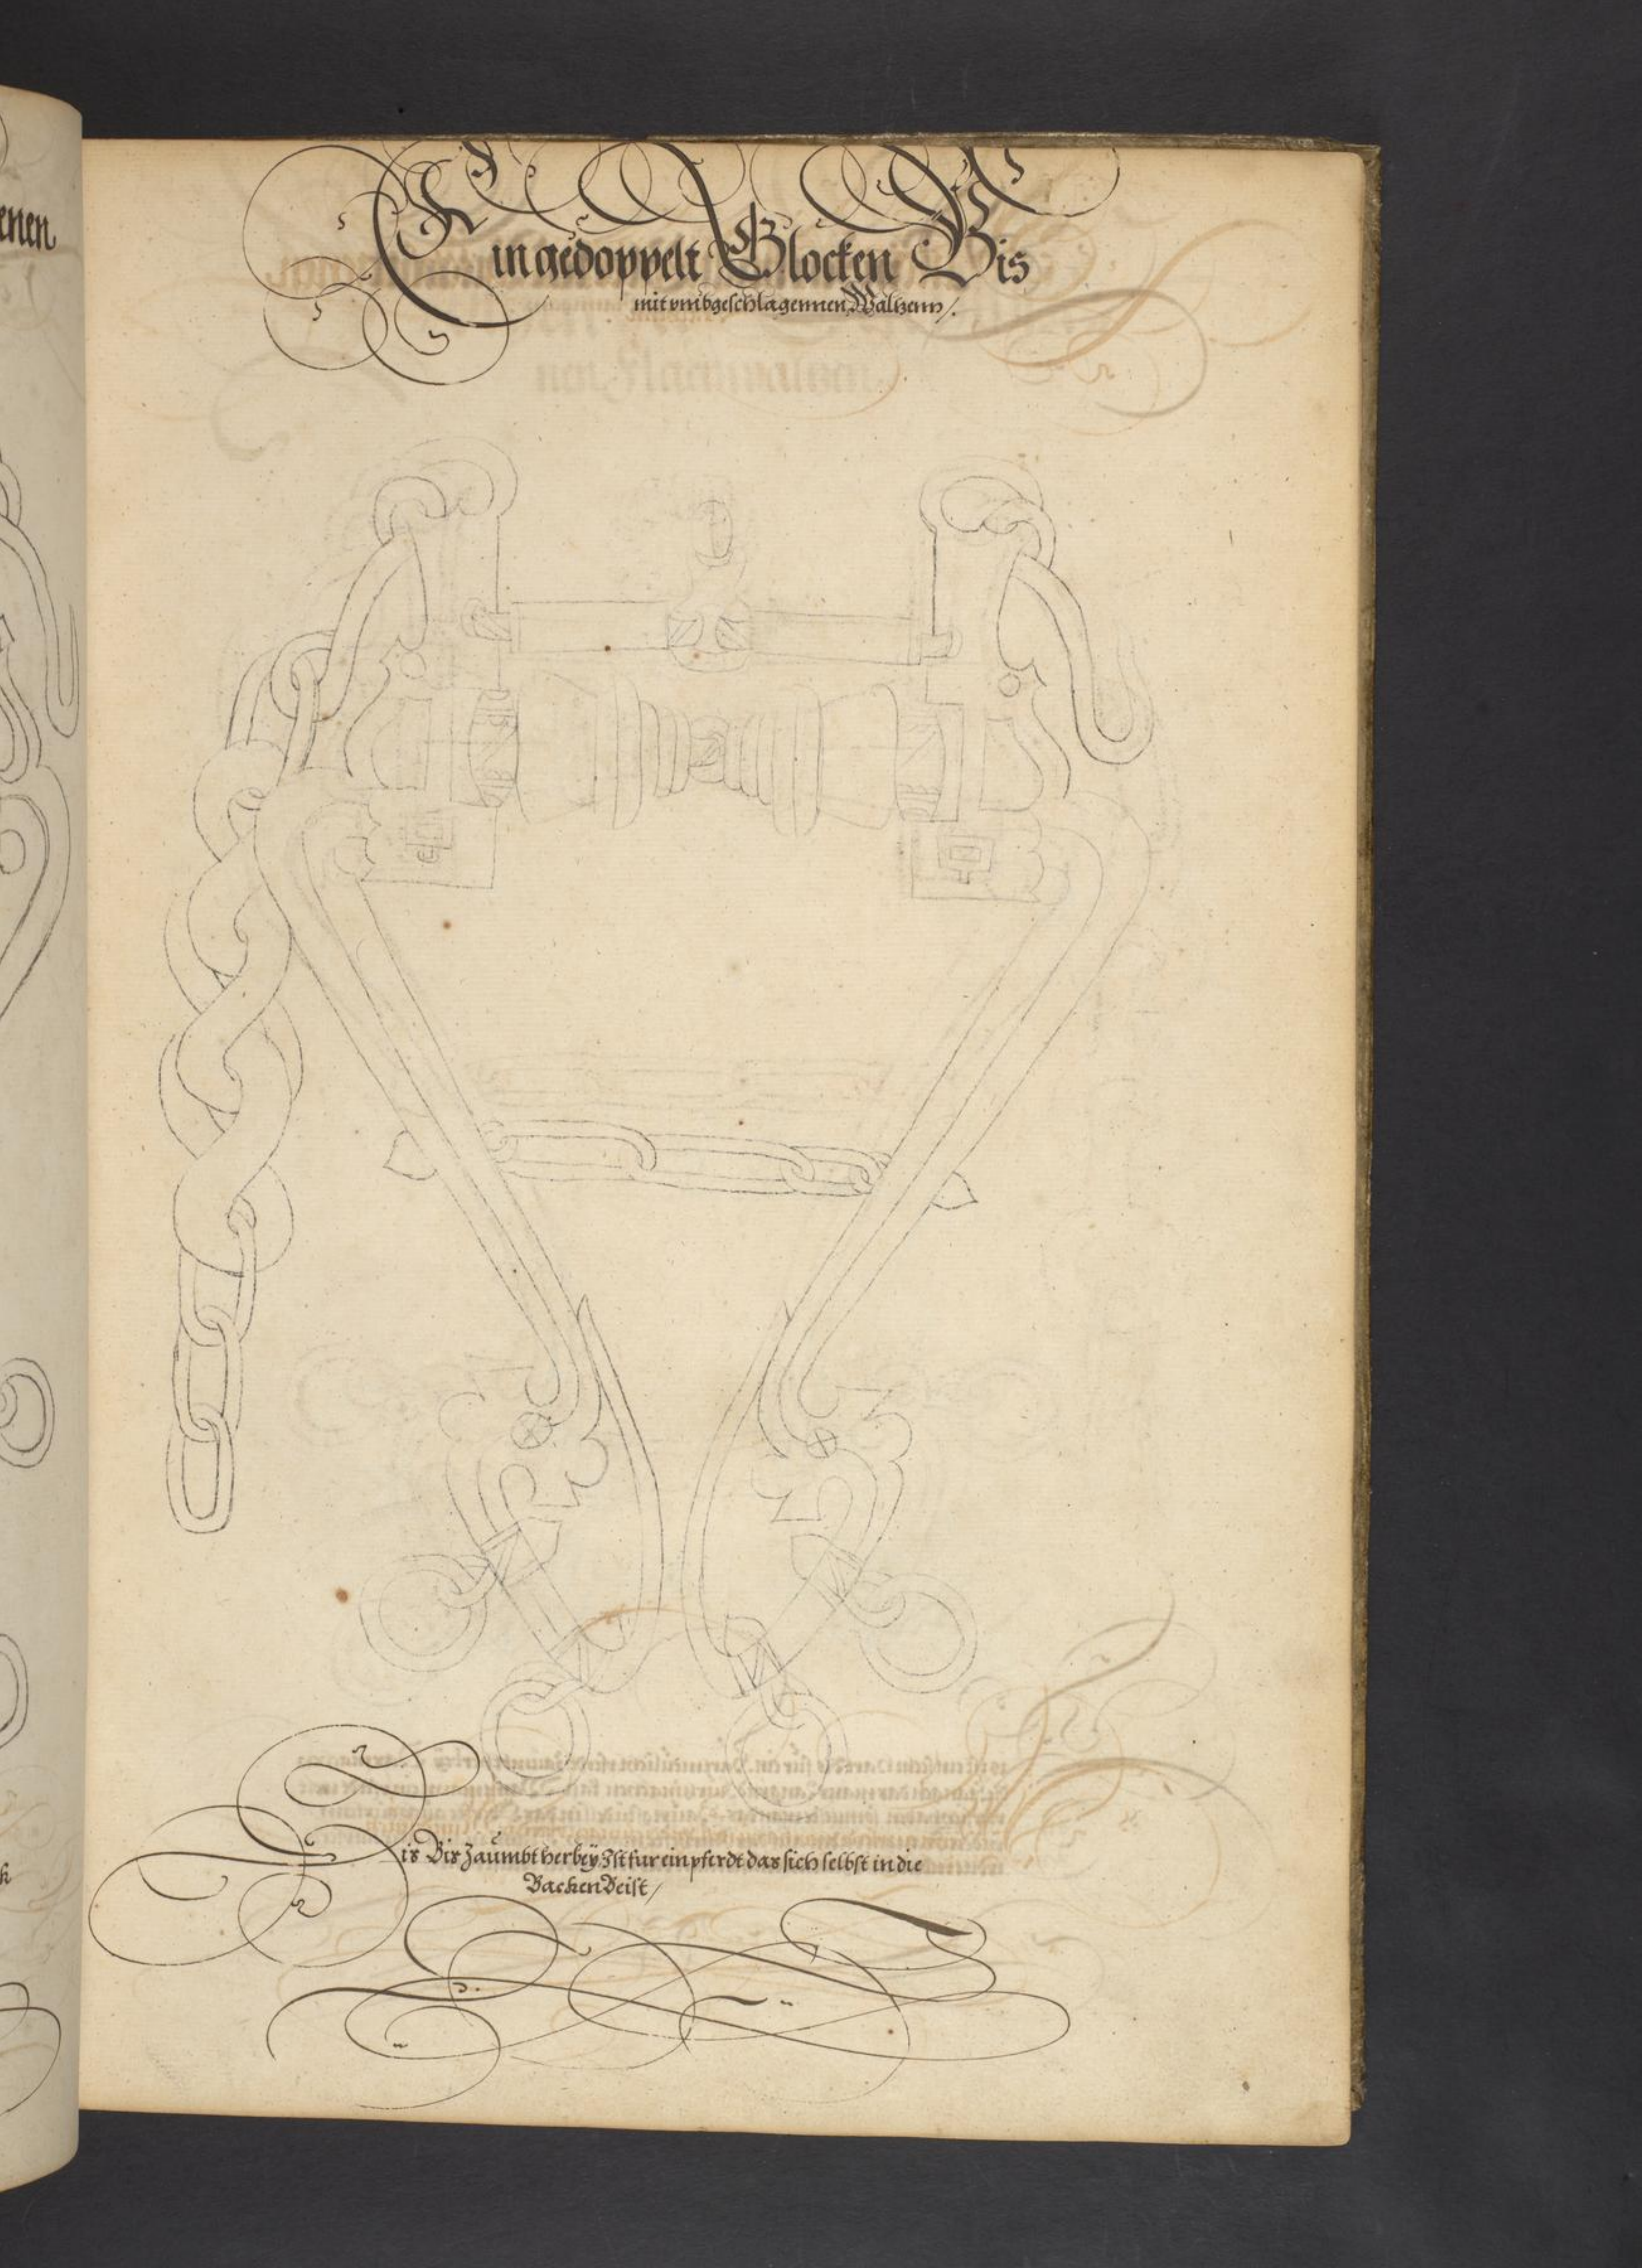 Ein gedoppelt Glocken Bis
mit vmbgeschlagennen Waltzenn /.
Dis Bis Zaumbt herbey Ist fur ein pferdt das sich selbst in die
Backen Beist /
enen